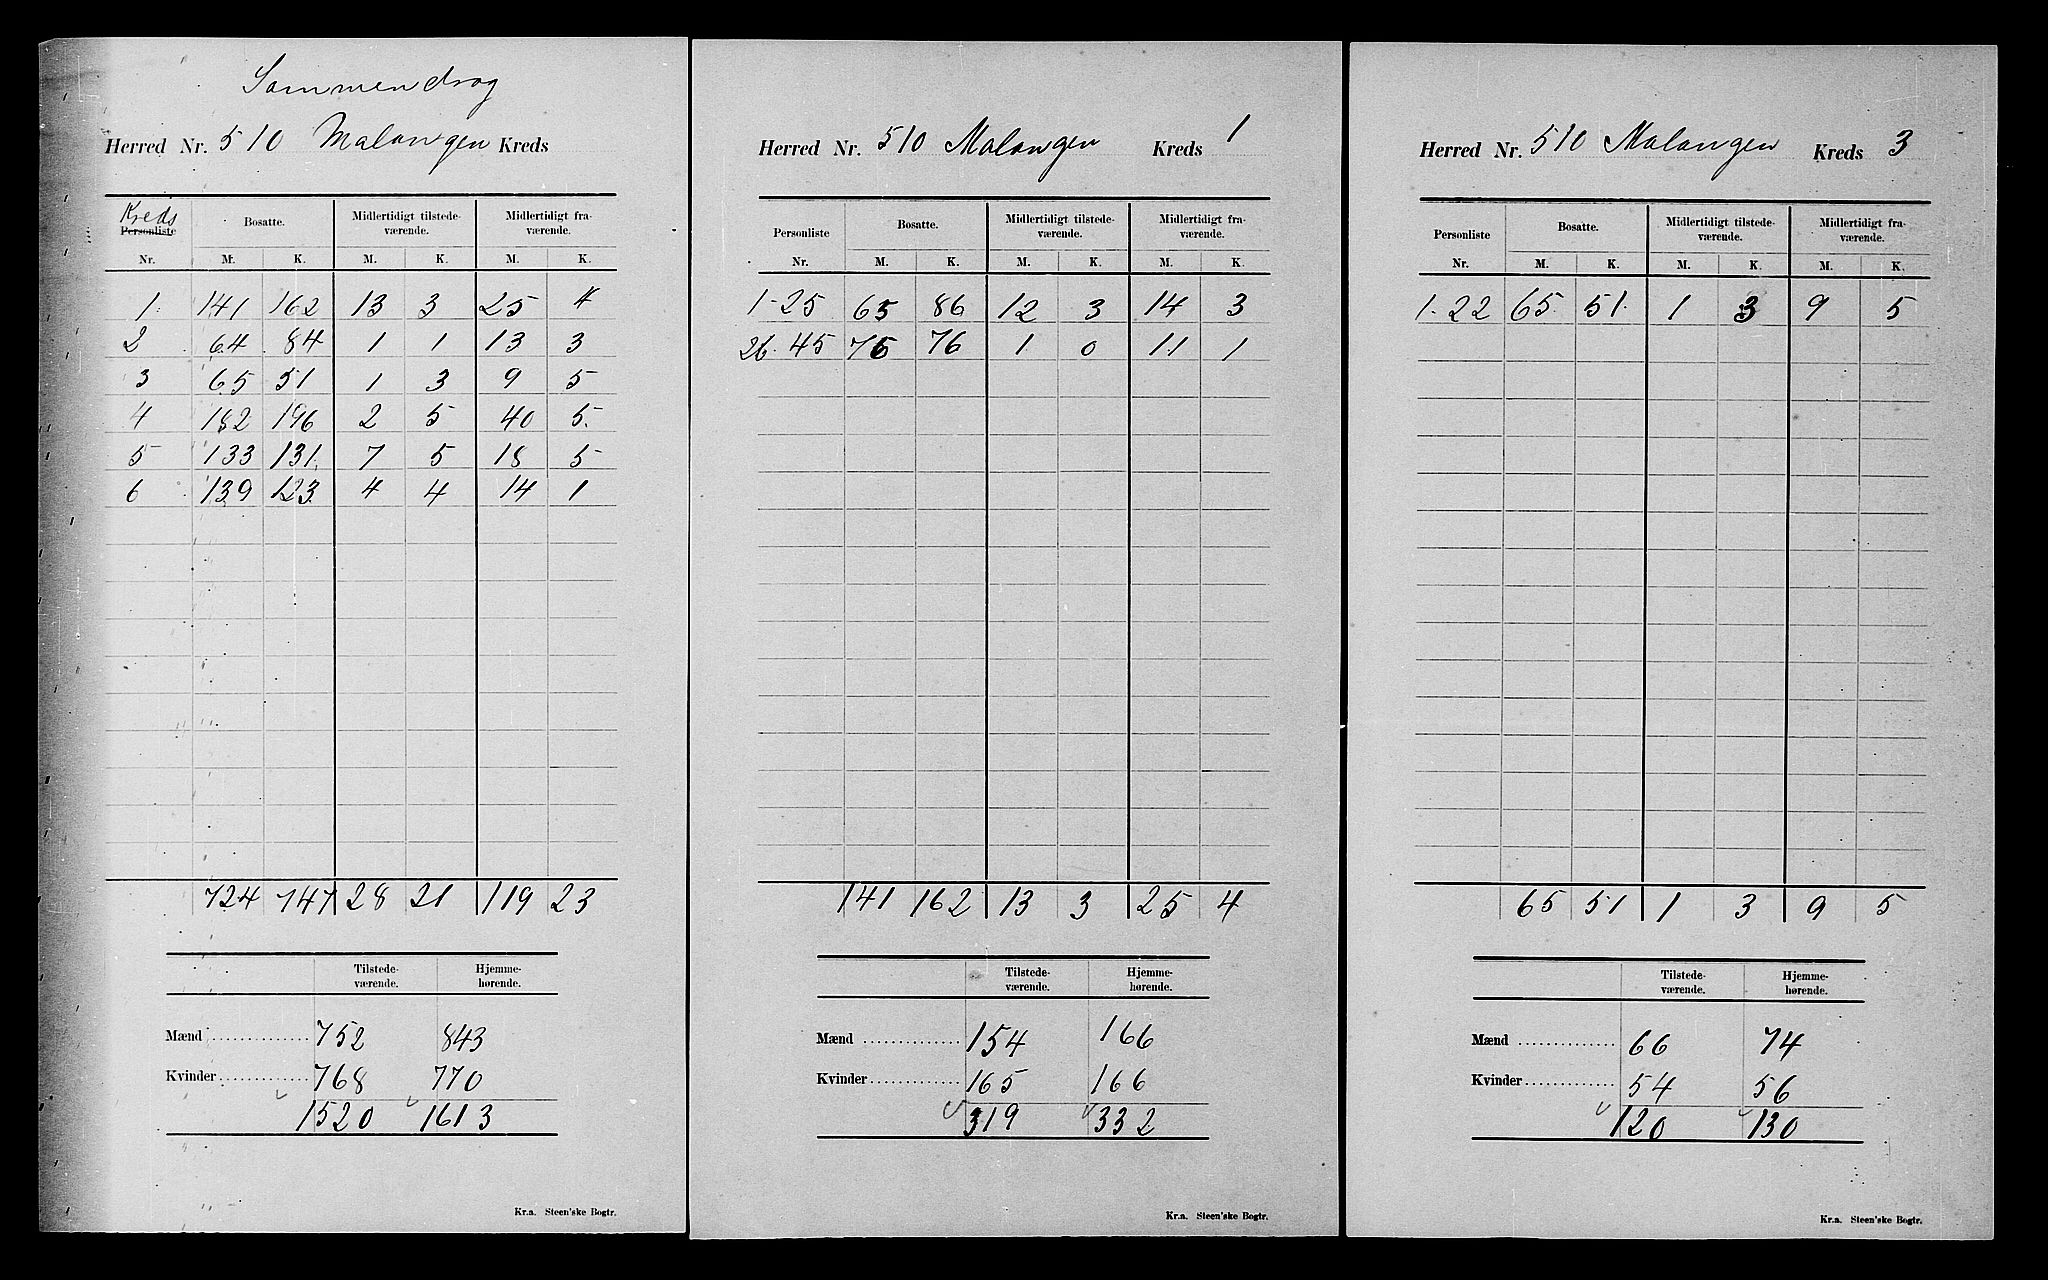 Sammendrag
Herred Nr. 510 Malangen Kreds
Kreds
Personliste Bosatte. Midlertidigt tilstede- Midlertidigt fra-
værende. værende.
Nr. M. K. M. K. M. K.
1 141 162 13 3 25 4
2 64 84 1 1 13 3
3 65 51 1 3 9 5
4 182 196 2 5 40 5
5 133 131 7 5 18 5
6 139 123 4 4 14 1
724 747 28 21 119 23
Tilstede- Hjemme-
værende. hørende.
Mænd 752 843
Kvinder 768 770
1520 1613
Kr.a. Steen'ske Bogtr.
Herred Nr. 510 Malangen Kreds 1
Personliste Bosatte. Midlertidigt tilstede- Midlertidigt fra-
værende. værende.
Nr. M. K. M. K. M. K.
1-25 65 86 12 3 14 3
26-45 76 76 1 0 11 1
141 162 13 3 25 4
Tilstede- Hjemme-
værende. hørende.
Mænd 154 166
Kvinder 165 166
319 332
Kr.a. Steen'ske Bogtr.
Herred Nr. 510 Malangen Kreds 3
Personliste Bosatte. Midlertidigt tilstede- Midlertidigt fra-
værende. værende.
Nr. M. K. M. K. M. K.
1-22 65 51 1 3 9 5
65 51 1 3 9 5
Tilstede- Hjemme-
værende. hørende.
Mænd 66 74
Kvinder 54 56
120 130
Kr.a. Steen'ske Bogtr.